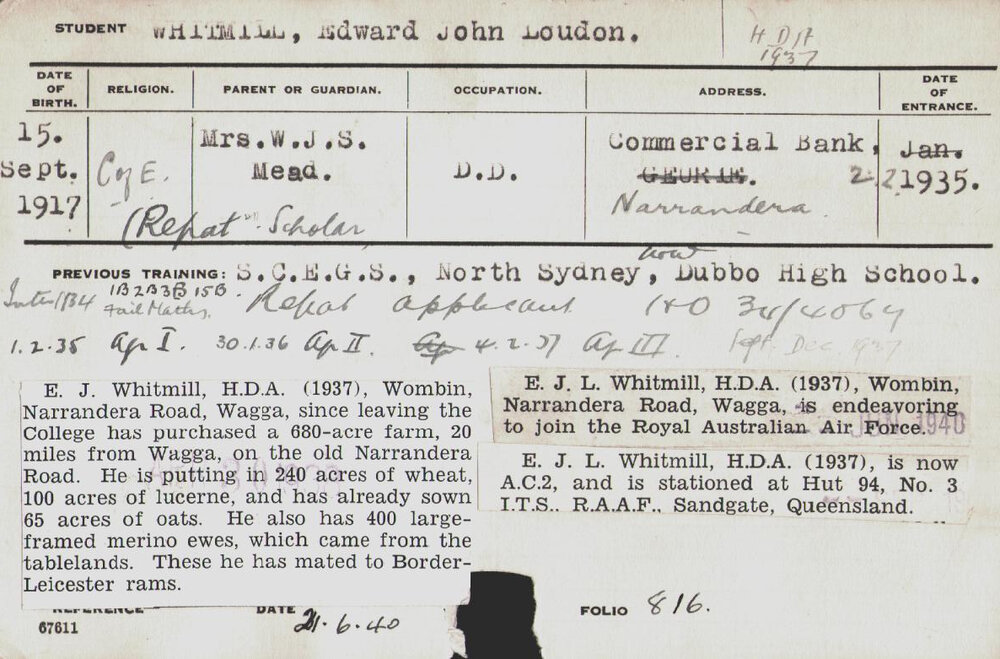 STUDENT WHITMILL, Edward John Loudon.
H D A
1937
DATE OF BIRTH. RELIGION. PARENT OR GUARDIAN. OCCUPATION. ADDRESS. DATE OF ENTRANCE.
15. Sept. 1917
C of E.
Mrs.W.J.S.
Mead.
(Repat Scholar
D.D.
Commercial Bank,
GEURIE.
Narrandera
Jan.
2.2.1935.
now
PREVIOUS TRAINING: S.C.E.G.S., North Sydney, Dubbo High School.
Inter 1934 1B 2B 3B 15B. Repat applicant 34/4064
Fail Maths.
1.2.35 Ag I. 30.1.36 Ag II. Ag 4.2.37 Ag III. Dec. 1937
E. J. Whitmill, H.D.A. (1937), Wombin,
Narrandera Road, Wagga, since leaving the
College has purchased a 680-acre farm, 20
miles from Wagga, on the old Narrandera
Road. He is putting in 240 acres of wheat,
100 acres of lucerne, and has already sown
65 acres of oats. He also has 400 large-
framed merino ewes, which came from the
tablelands. These he has mated to Border-
Leicester rams.
E. J. L. Whitmill, H.D.A. (1937), Wombin,
Narrandera Road, Wagga, is endeavoring
to join the Royal Australian Air Force.
1940
E. J. L. Whitmill, H.D.A. (1937), is now
A.C.2, and is stationed at Hut 94, No. 3
I.T.S., R.A.A.F., Sandgate, Queensland.
REFERENCE DATE 21.6.40 FOLIO 816.
67611